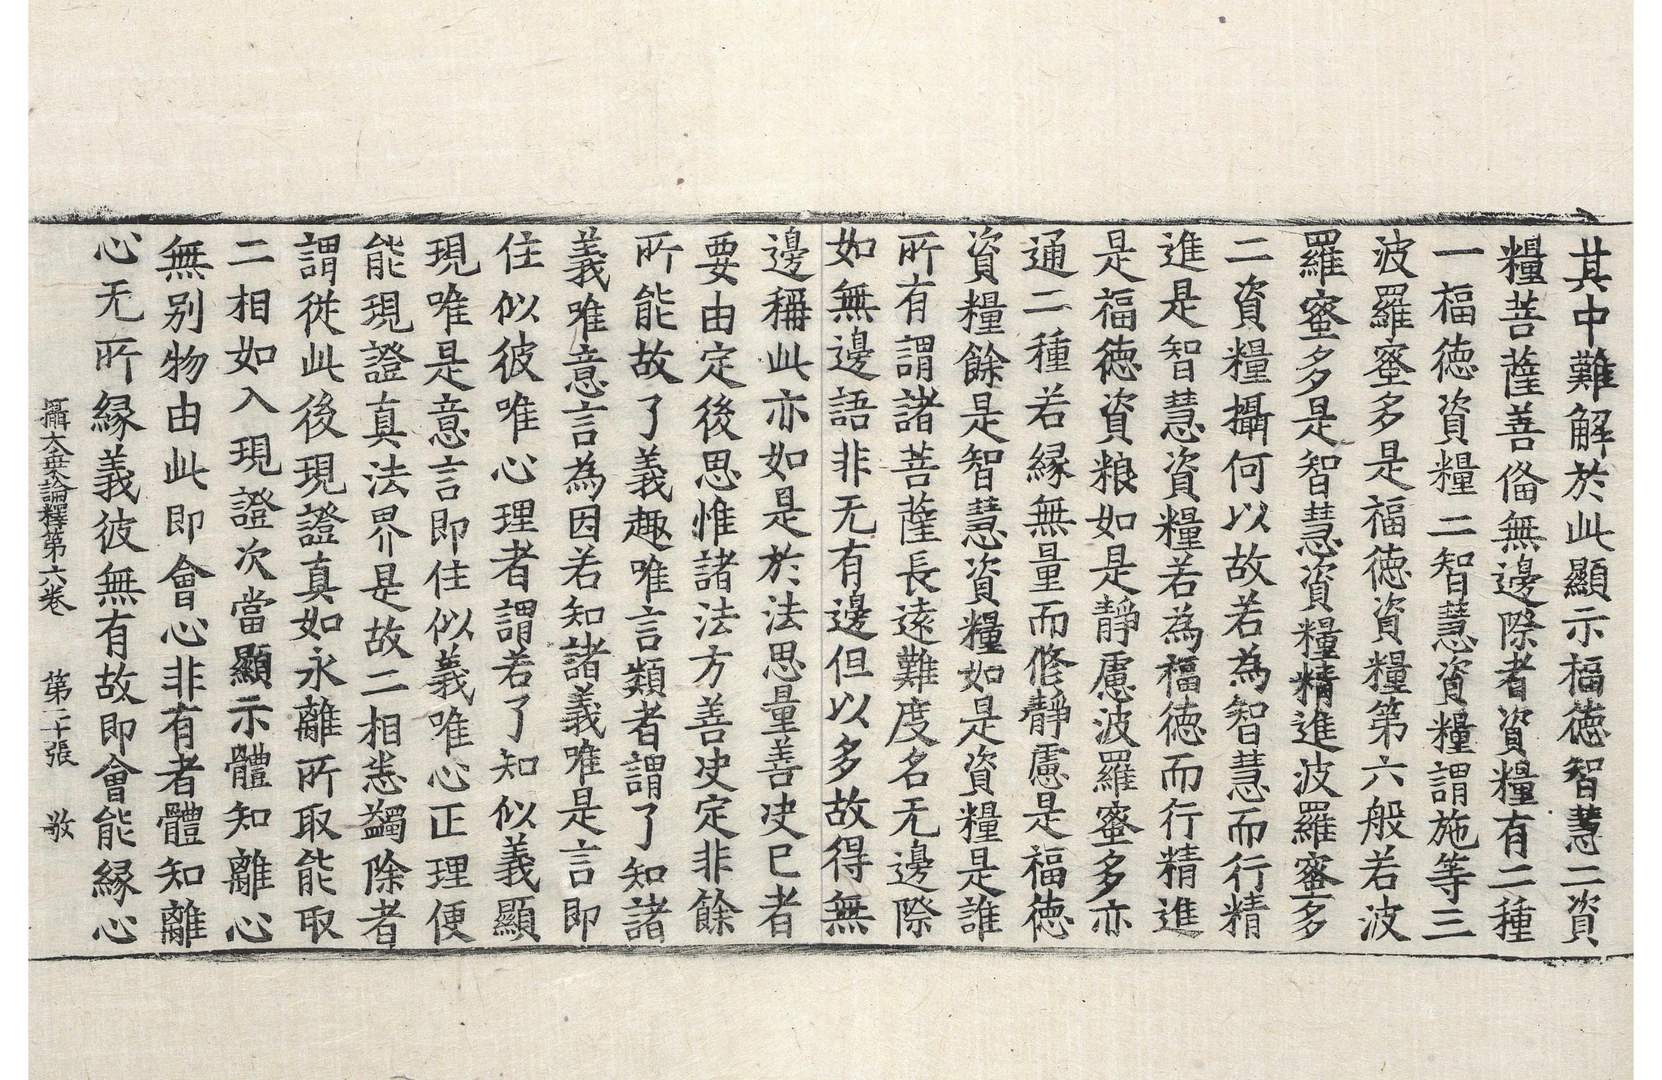 其中難解於此顯示福徳智慧二資
糧菩薩善俻無邊際者資糧有二種
一福徳資糧二智慧資糧謂施等三
波羅蜜多是福徳資糧第六般若波
羅蜜多是智慧資糧精進波羅蜜多
二資糧攝何以故若為智慧而行精
進是智慧資糧若為福徳而行精進
是福徳資粮如是靜慮波羅蜜多亦
通二種若縁無量而修靜慮是福徳
資糧餘是智慧資糧如是資糧是誰
所有謂諸菩薩長遠難度名无邊際
如無邊語非无有邊但以多故得無
邊稱此亦如是於法思量善决已者
要由定後思惟諸法方善决定非餘
所能故了義趣唯言類者謂了知諸
義唯意言為因若知諸義唯是言即
住似彼唯心理者謂若了知似義顯
現唯是意言即住似義唯心正理便
能現證真法界是故二相悉蠲除者
謂從此後現證真如永離所取能取
二相如入現證次當顯示體知離心
無别物由此即會心非有者體知離
心无所縁義彼無有故即會能縁心
攝大乗論釋第六卷　第二十張　敬